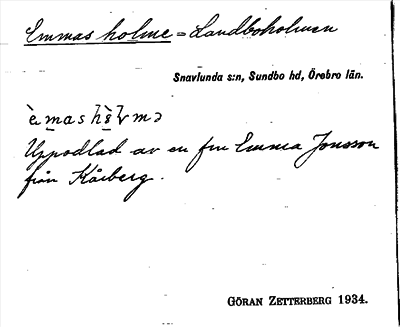 Emmas holme = Sandboholmen
Snavlunda s:n, Sundbo hd, Örebro län.
Uppodlad av en fru Emma Jonsson
från Kårberg.
GÖRAN ZETTERBERG 1934.